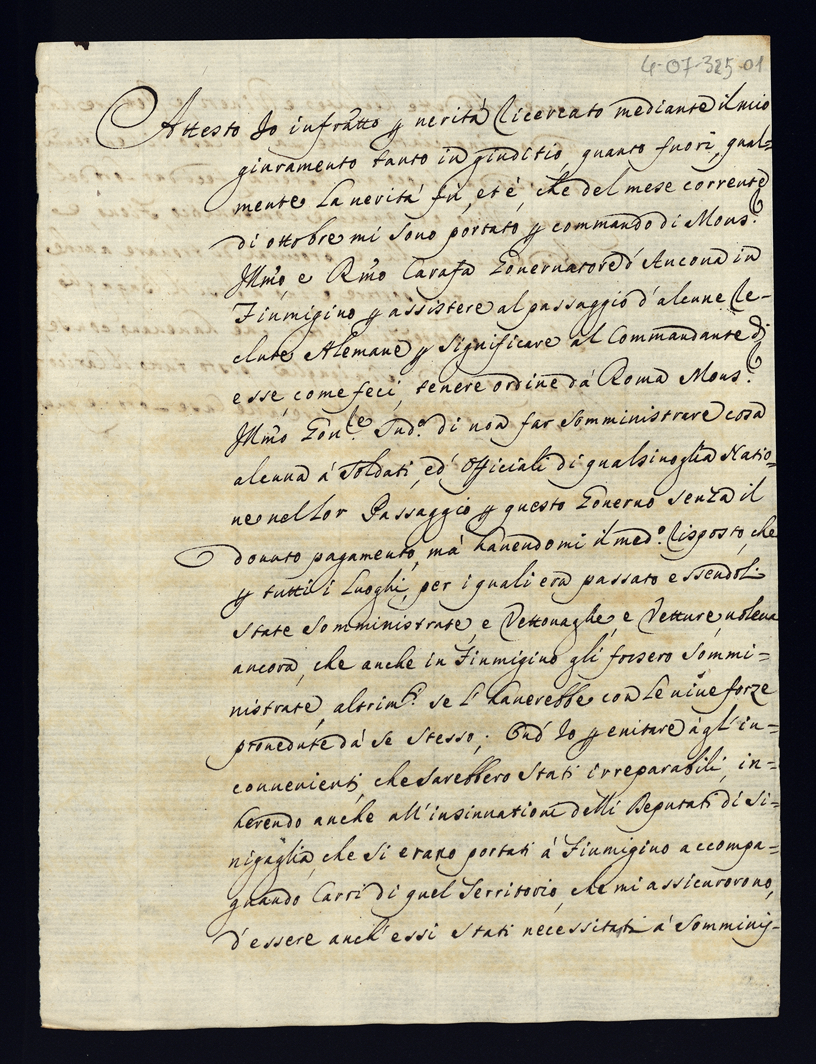 4-07-325-01
Attesto Io infratto p verità ricercato mediante il mio
giuramento tanto in giuditio, quanto fuori, qual=
mente la verità fù, et è, che del mese corrente
di ottobre mi sono portato p commando di Mons.r
Illmo e Rmo Carafa Governatore d'Ancona in
Fiumigino p assistere al passaggio d'alcune re-
clute Alemane p significare al Commandante di
esse, come feci, tenere ordine dà Roma Mons.r
Illmo Gov.le Sud.o di non far somministrare cosa
alcuna à soldati, ed' Officiali di qualsivoglia Natio=
ne nel lor Passaggio p questo Governo senza il
dovuto pagamento, mà havendomi il med.o risposto, che
p tutti i Luoghi, per i quali era passato essendoli
state somministrate, e Vettovaglie, e Vetture, voleva
ancora, che anche in Fiumigino gli fossero sommi=
nistrate, altrim.ti se l'haverebbe con le vive forze
provedute dà se stesso; Ond' Io p evitare àgl'in=
convenienti, che sarebbero stati irreparabili, in=
herendo anche all'insinuatione delli Deputati di Si=
nigaglia, che si erano portati à Fiumigino accompa=
gnando Carri di quel Territorio, che mi assicurorono,
d'essere anch'essi stati necessitati à somminis-